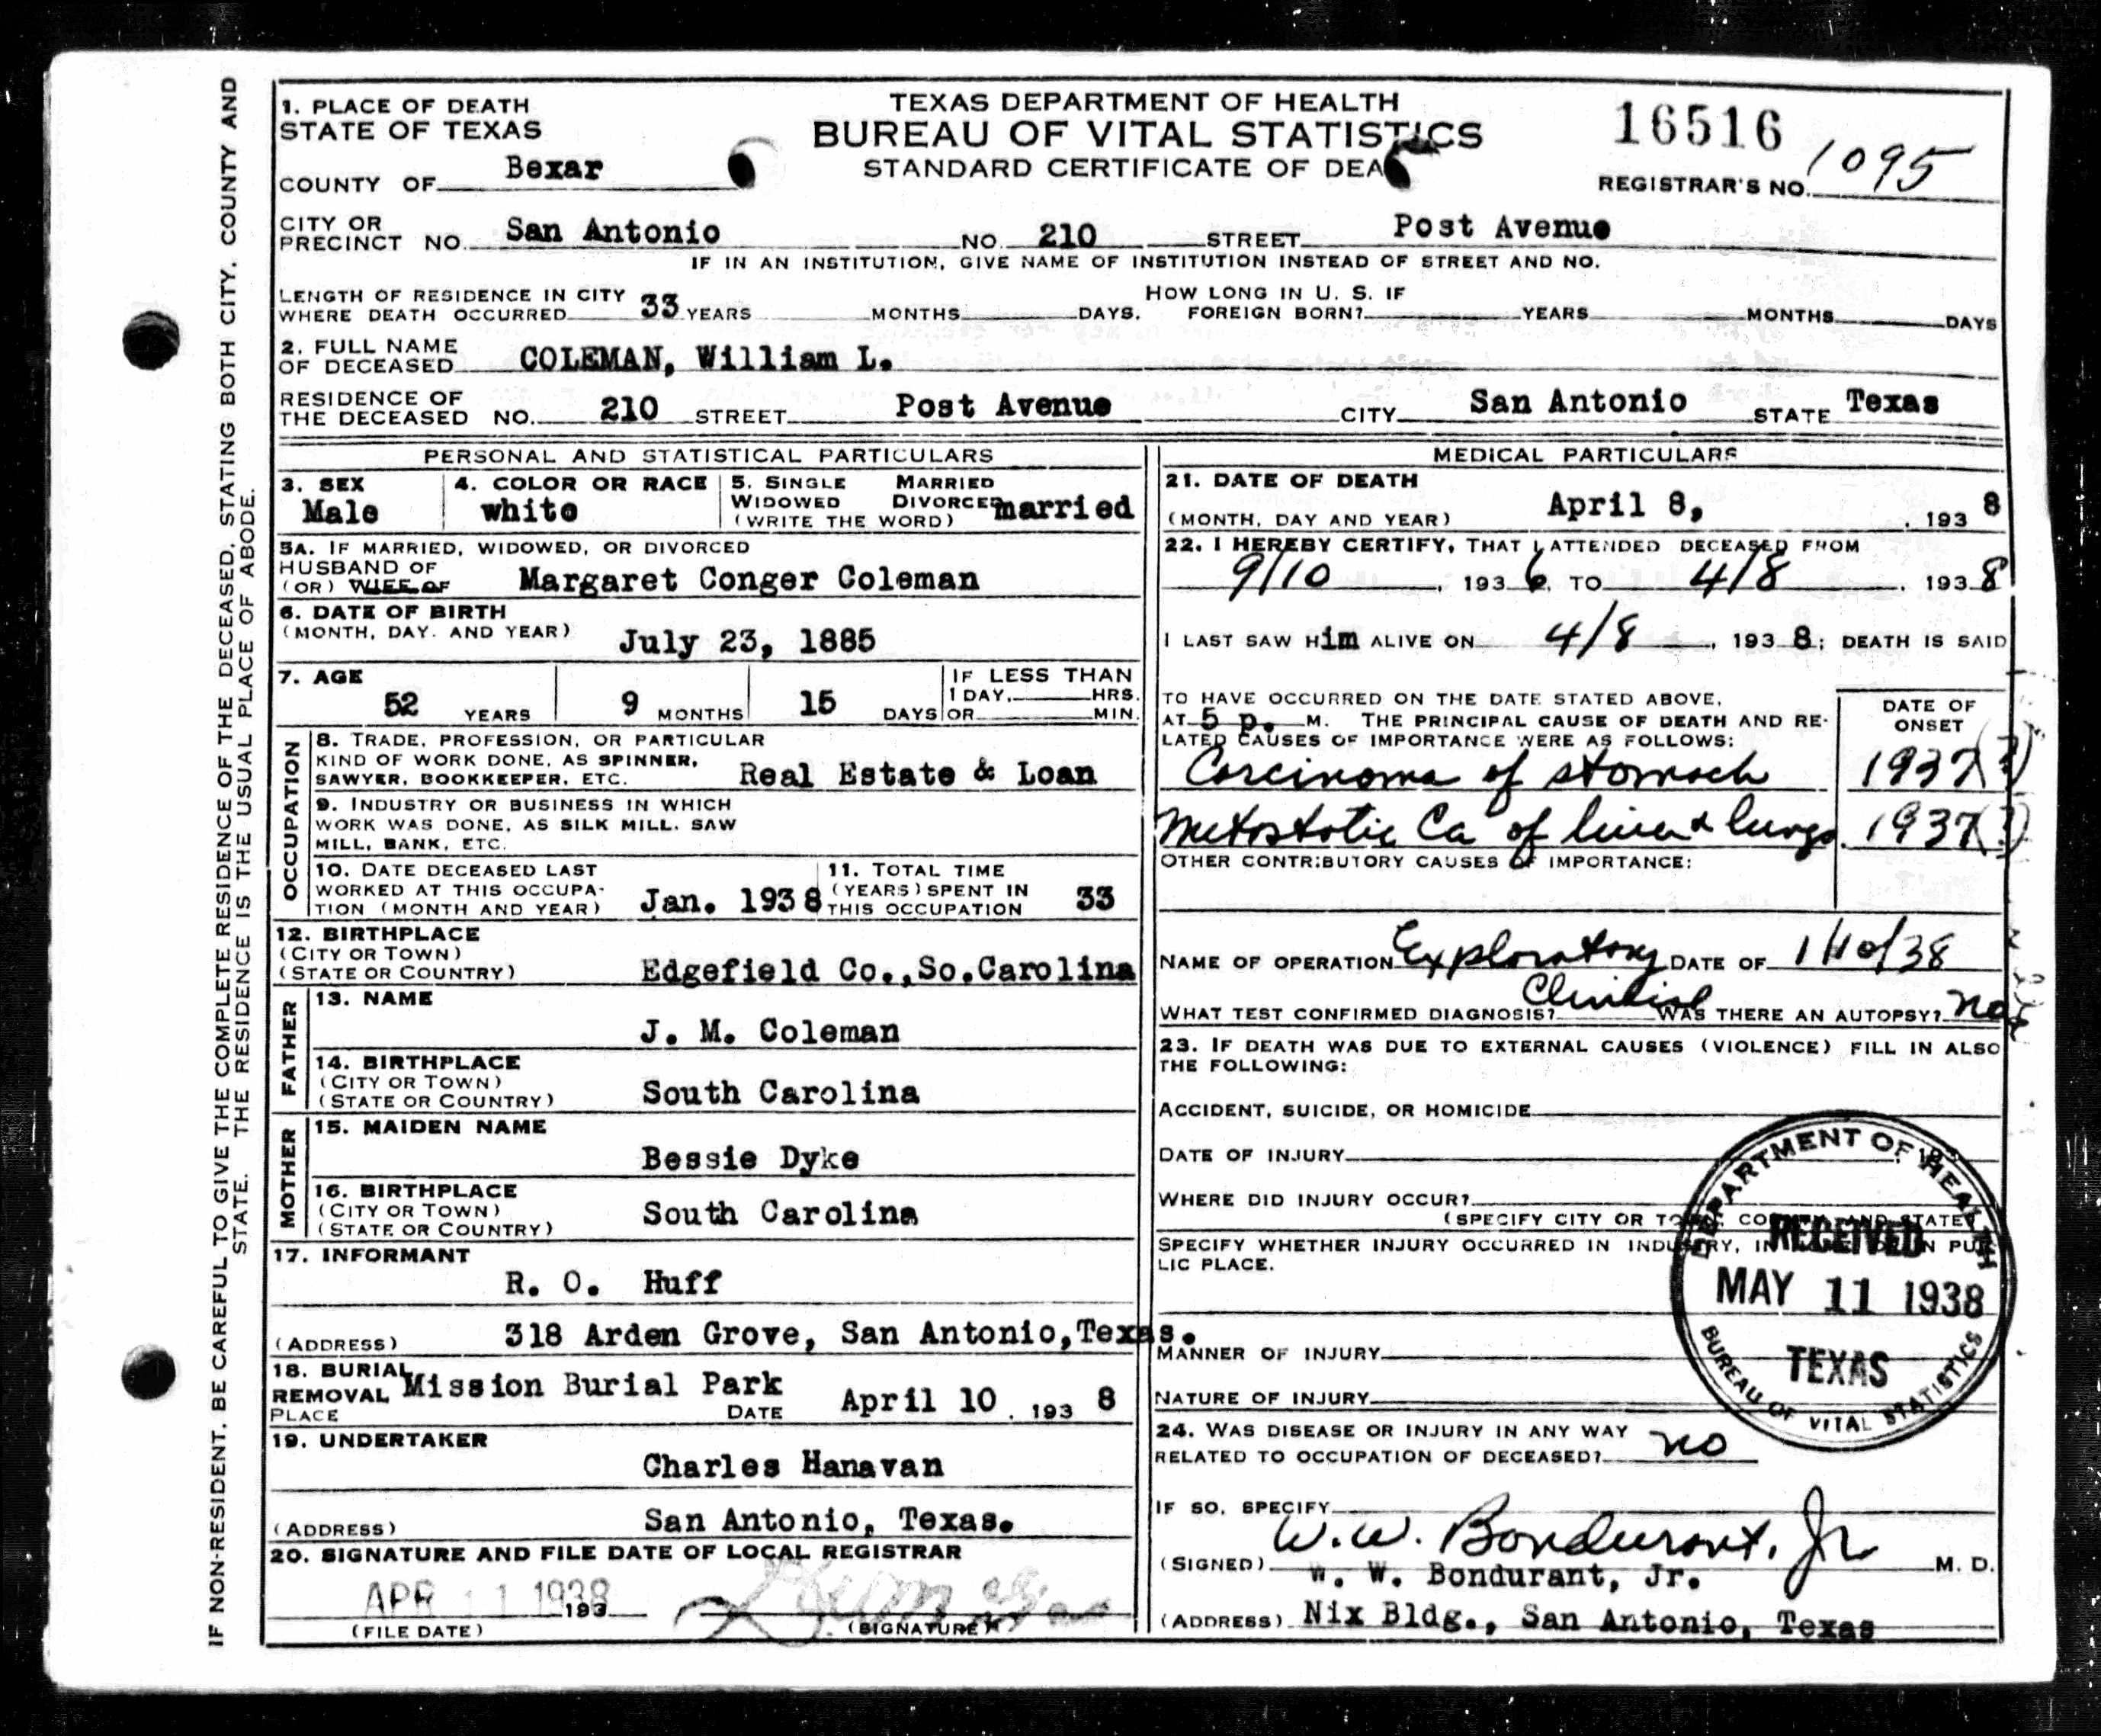 1. PLACE OF DEATH
STATE OF TEXAS
COUNTY OF Bexar
TEXAS DEPARTMENT OF HEALTH
BUREAU OF VITAL STATISTICS
STANDARD CERTIFICATE OF DEA
16516
REGISTRAR'S NO. 1095
CITY OR
PRECINCT NO. San Antonio NO. 210 STREET Post Avenue
IF IN AN INSTITUTION, GIVE NAME OF INSTITUTION INSTEAD OF STREET AND NO.
LENGTH OF RESIDENCE IN CITY
WHERE DEATH OCCURRED 33 YEARS MONTHS DAYS.
HOW LONG IN U. S. IF
FOREIGN BORN? YEARS MONTHS DAYS
2. FULL NAME
OF DECEASED COLEMAN, William L.
RESIDENCE OF
THE DECEASED NO. 210 STREET Post Avenue CITY San Antonio STATE Texas
PERSONAL AND STATISTICAL PARTICULARS
3. SEX
Male
4. COLOR OR RACE
white
5. SINGLE MARRIED
WIDOWED DIVORCED married
(WRITE THE WORD)
5A. IF MARRIED, WIDOWED, OR DIVORCED
HUSBAND OF
(OR) WIFE OF Margaret Conger Coleman
6. DATE OF BIRTH
(MONTH, DAY, AND YEAR) July 23, 1885
7. AGE
52 YEARS 9 MONTHS 15 DAYS
IF LESS THAN
1 DAY, HRS.
OR MIN.
OCCUPATION
8. TRADE, PROFESSION, OR PARTICULAR
KIND OF WORK DONE, AS SPINNER,
SAWYER, BOOKKEEPER, ETC. Real Estate & Loan
9. INDUSTRY OR BUSINESS IN WHICH
WORK WAS DONE, AS SILK MILL, SAW
MILL, BANK, ETC.
10. DATE DECEASED LAST
WORKED AT THIS OCCUPA-
TION (MONTH AND YEAR) Jan. 1938
11. TOTAL TIME
(YEARS) SPENT IN
THIS OCCUPATION 33
12. BIRTHPLACE
(CITY OR TOWN)
(STATE OR COUNTRY) Edgefield Co.,So.Carolina
FATHER
13. NAME
J. M. Coleman
14. BIRTHPLACE
(CITY OR TOWN)
(STATE OR COUNTRY) South Carolina
MOTHER
15. MAIDEN NAME
Bessie Dyke
16. BIRTHPLACE
(CITY OR TOWN)
(STATE OR COUNTRY) South Carolina
17. INFORMANT
R. O. Huff
(ADDRESS) 318 Arden Grove, San Antonio,Texas.
18. BURIAL
REMOVAL Mission Burial Park
PLACE DATE April 10, 1938
19. UNDERTAKER
Charles Hanavan
(ADDRESS) San Antonio, Texas.
20. SIGNATURE AND FILE DATE OF LOCAL REGISTRAR
APR 11 1938
193
(FILE DATE) (SIGNATURE)
MEDICAL PARTICULARS
21. DATE OF DEATH
(MONTH, DAY AND YEAR) April 8, , 1938
22. I HEREBY CERTIFY, THAT I ATTENDED DECEASED FROM
9/10, 1936, TO 4/8, 1938
I LAST SAW Him ALIVE ON 4/8, 1938; DEATH IS SAID
TO HAVE OCCURRED ON THE DATE STATED ABOVE,
AT 5 p. M. THE PRINCIPAL CAUSE OF DEATH AND RE-
LATED CAUSES OF IMPORTANCE WERE AS FOLLOWS:
DATE OF
ONSET
Carcinoma of stomach 1937(?)
Metastatic Ca of liver & lungs 1937(?)
OTHER CONTRIBUTORY CAUSES OF IMPORTANCE:
NAME OF OPERATION Exploratory DATE OF 1/10/38
WHAT TEST CONFIRMED DIAGNOSIS? Clinical WAS THERE AN AUTOPSY? no
23. IF DEATH WAS DUE TO EXTERNAL CAUSES (VIOLENCE) FILL IN ALSO
THE FOLLOWING:
ACCIDENT, SUICIDE, OR HOMICIDE
DATE OF INJURY
WHERE DID INJURY OCCUR?
(SPECIFY CITY OR TOWN, COUNTY AND STATE)
SPECIFY WHETHER INJURY OCCURRED IN INDUSTRY, IN PUB-
LIC PLACE.
MANNER OF INJURY
NATURE OF INJURY
DEPARTMENT OF HEALTH
RECEIVED
MAY 11 1938
TEXAS
BUREAU OF VITAL STATISTICS
24. WAS DISEASE OR INJURY IN ANY WAY
RELATED TO OCCUPATION OF DECEASED? no
IF SO, SPECIFY
W. W. Bondurant, Jr
(SIGNED) W. W. Bondurant, Jr. M. D.
(ADDRESS) Nix Bldg., San Antonio, Texas
IF NON-RESIDENT, BE CAREFUL TO GIVE THE COMPLETE RESIDENCE OF THE DECEASED, STATING BOTH CITY, COUNTY AND
STATE. THE RESIDENCE IS THE USUAL PLACE OF ABODE.